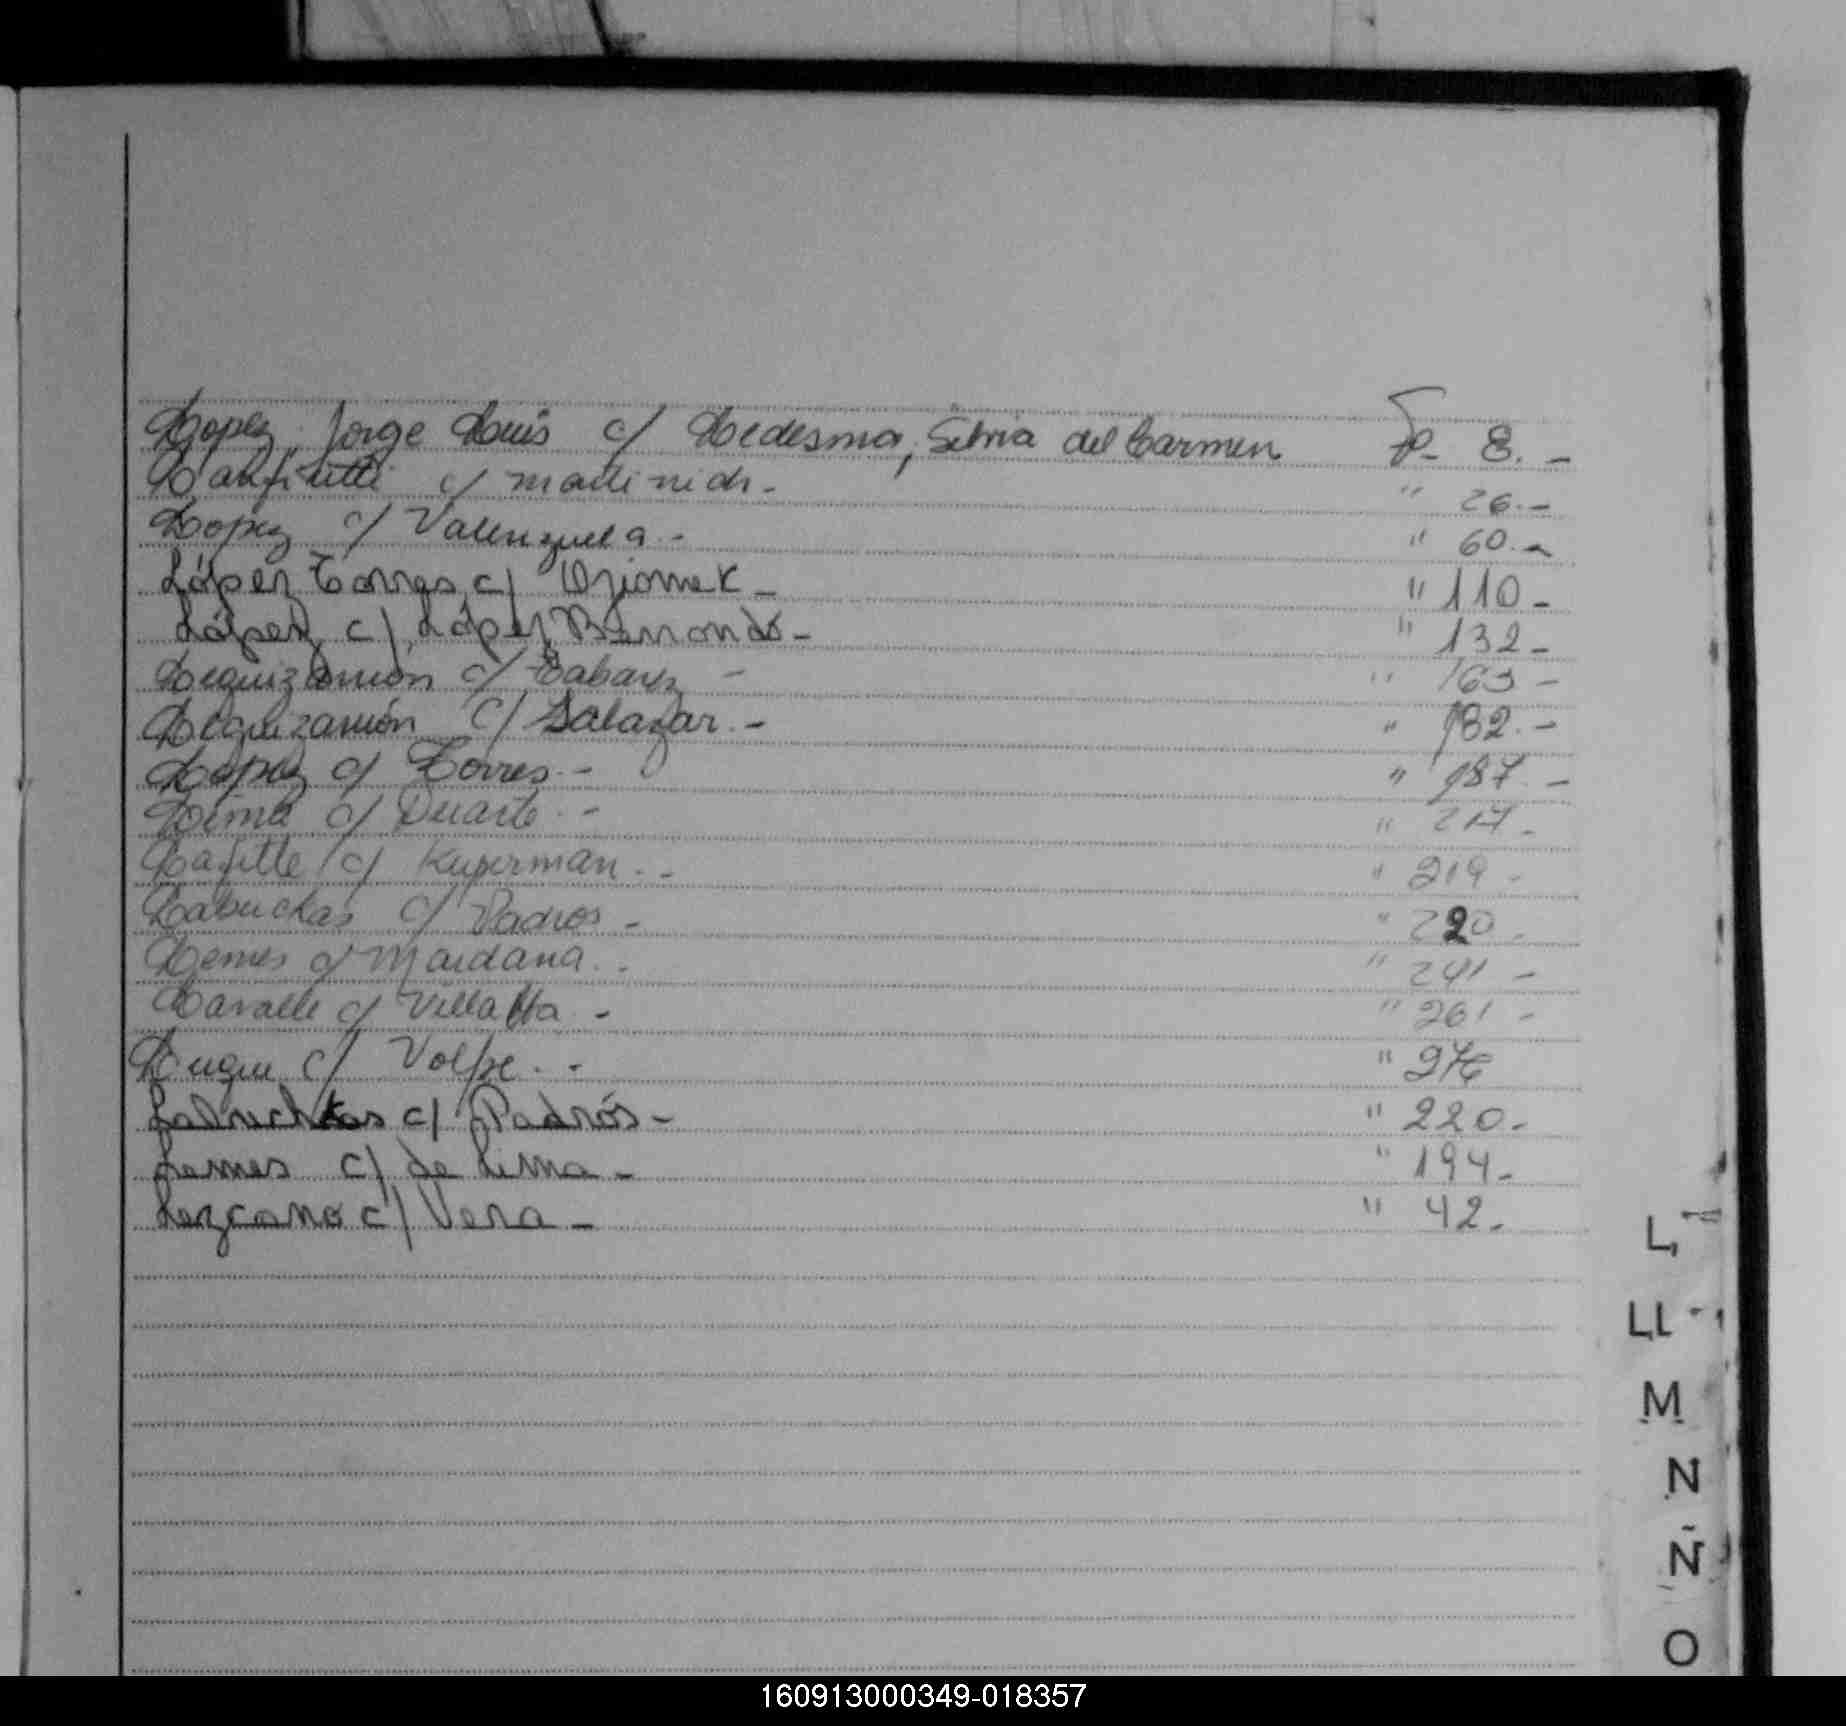 Lopez, Jorge Luis c/ Ledesma, Silvia del Carmen Fo- 8.-
c/ " 26.-
Lopez c/ Valenzuela.- " 60.-
López Torres c/ Oziomek- " 110-
López c/ López Berrondo- " 132-
Leguizamón c/ Tabarez - " 163-
Leguizamón c/ Salazar.- " 182.-
López c/ Torres.- " 187.-
Lima c/ Duarte.- " 217-
Lafitte c/ Kuperman.- " 219-
Labuckas c/ Padros- " 220-
Lemes c/ Maidana.- " 241-
Lavalle c/ Villalba.- " 261-
Luque c/ Volpe.- " 276
Labuckas c/ Padrós- " 220-
Lemes c/ de Lima- " 194-
Lezcano c/ Vera- " 42-
L
LL
M
N
Ñ
O
160913000349-018357